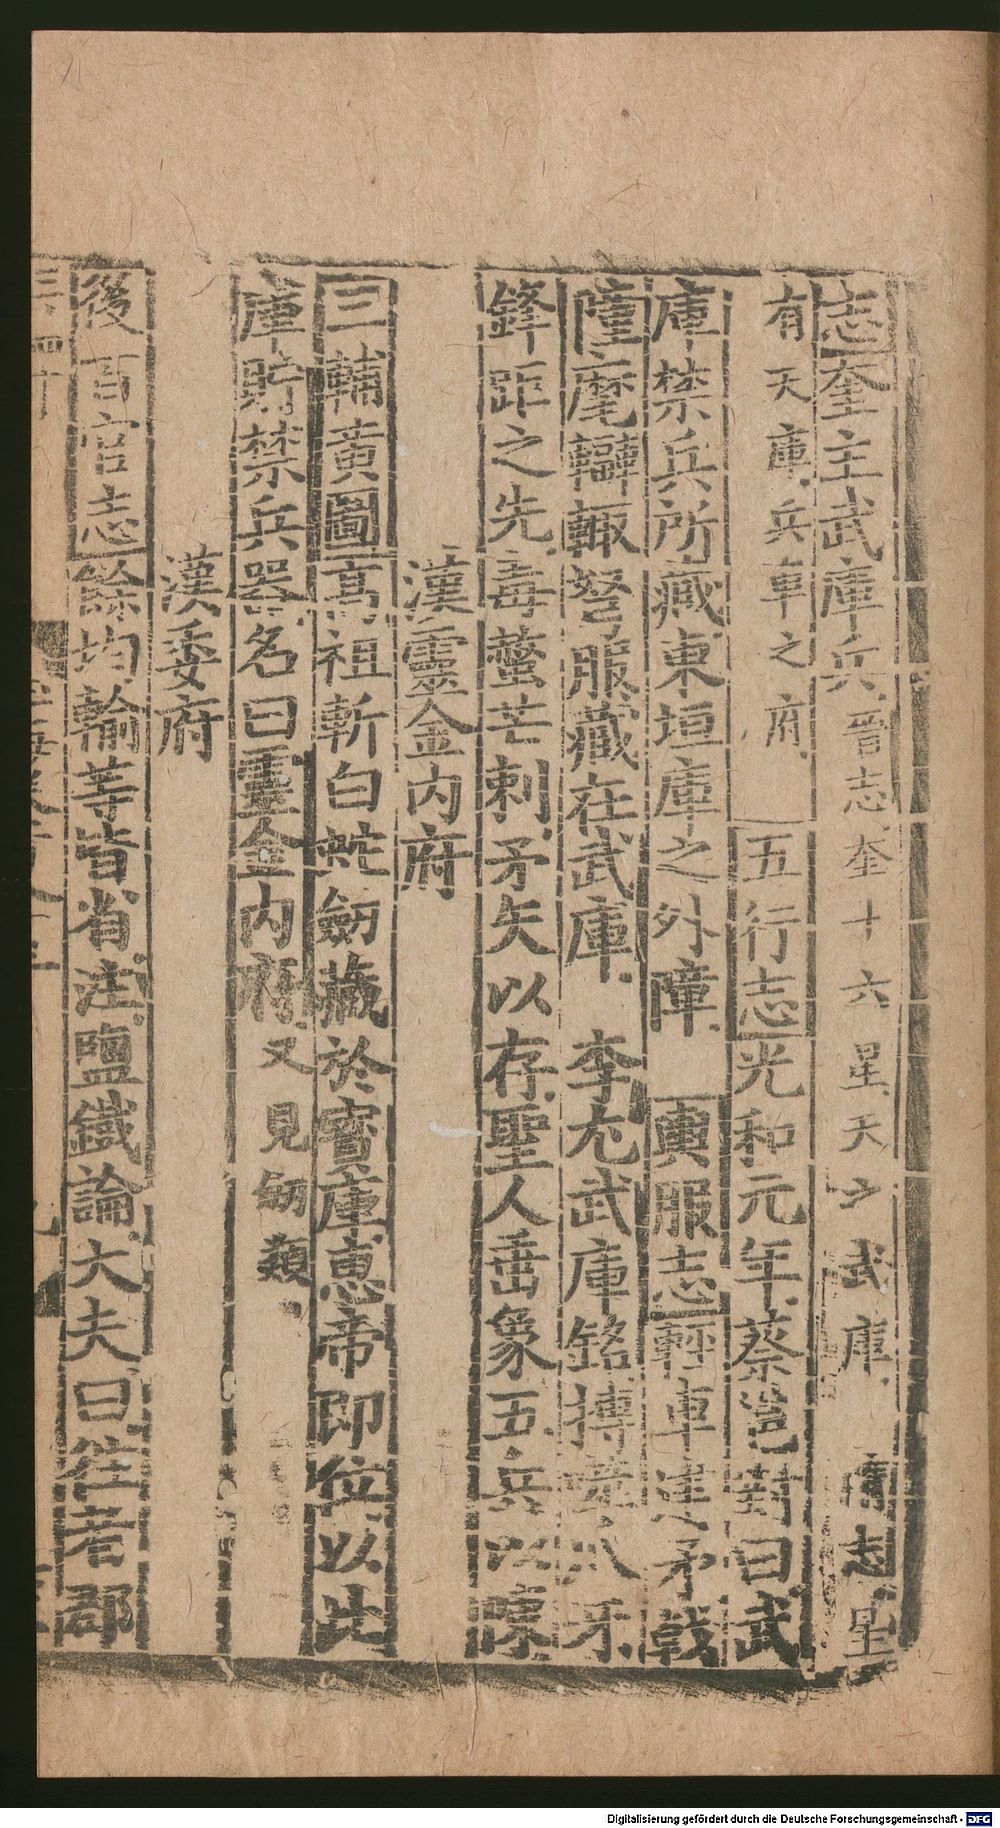 志奎主武庫兵晉志奎十六星天之武庫 志星
有天庫兵車之府
五行志光和元年蔡邕對曰武
庫禁兵所藏東垣庫之外障 輿服志輕車建矛戟
幢麾轓輒弩服藏在武庫 李尤武庫銘搏噬爪牙
鋒距之先毒螫芒刺矛矢以存聖人垂象五兵以陳
漢靈金内府
三輔黃圖高祖斬白蛇劒藏於寶庫惠帝即位以此
庫貯禁兵器名曰靈金内府又見劒類
漢委府
後百官志餘均輸等皆省注鹽鐵論大夫曰往者郡
Digitalisierung gefördert durch die Deutsche Forschungsgemeinschaft - DFG